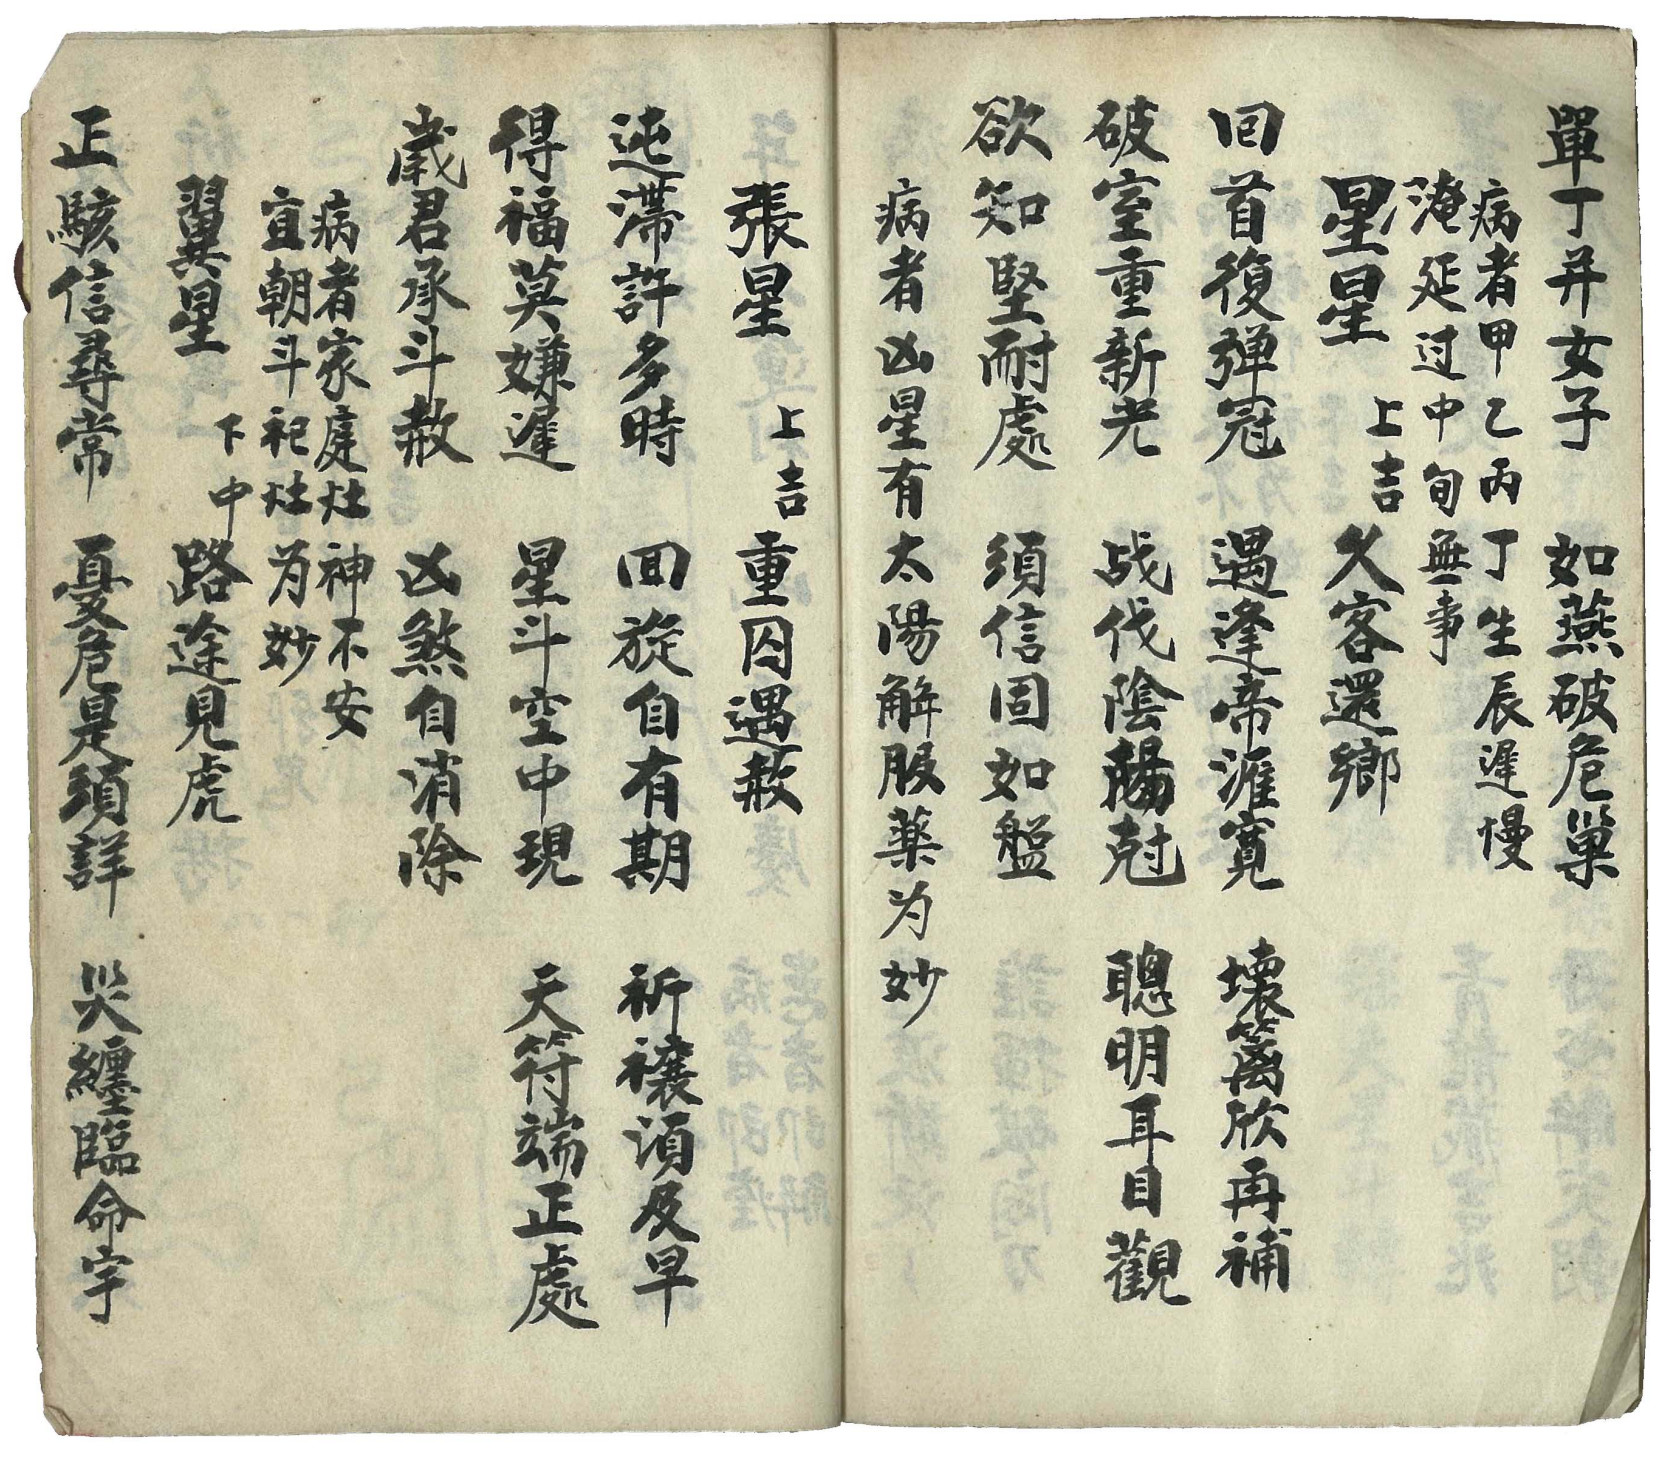 單丁并女子　如燕破危巢
病者甲乙丙丁生辰遲慢
淹延过中旬無事
星星　上吉　久客還鄉
回首復弹冠　遇逢帝滙寬　壞籬欣再補
破室重新光　战伐陰陽尅　聰明耳目觀
欲知堅耐處　須信固如盤
病者凶星有太陽解服薬为妙
張星　上吉　重囚遇赦
迍滯許多時　囬旋自有期　祈禳湏及早
得福莫嫌遲　星斗空中現　天符端正處
歳君承斗赦　凶煞自消除
病者家庭灶神不安
宜朝斗祀灶为妙
翼星　下中　路途見虎
正駭信尋常　憂危是須詳　災纏臨命宇